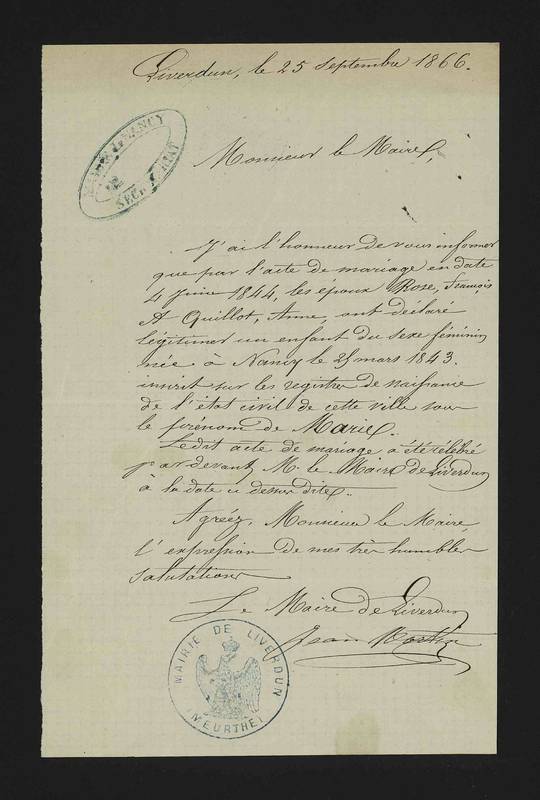 Liverdun, le 25 septembre 1866.
MAIRIE DE NANCY
SECRÉTARIAT
Monsieur le Maire,
J'ai l'honneur de vous informer
que par l'acte de mariage en date
4 Juin 1844, les époux Rose, François
et Quillot, Anne, ont déclaré
légitimer un enfant du sexe féminin
née à Nancy le 25 mars 1843.
inscrit sur les registres de naissance
de l'état civil de cette ville sous
le prénom de Marie.
Ledit acte de mariage a été célébré
par devant M. le Maire de Liverdun
à la date ci dessus dite.
Agréez, Monsieur le Maire,
l'expression de mes très humbles
salutations
Le Maire de Liverdun
Jean
MAIRIE DE LIVERDUN
(MEURTHE)